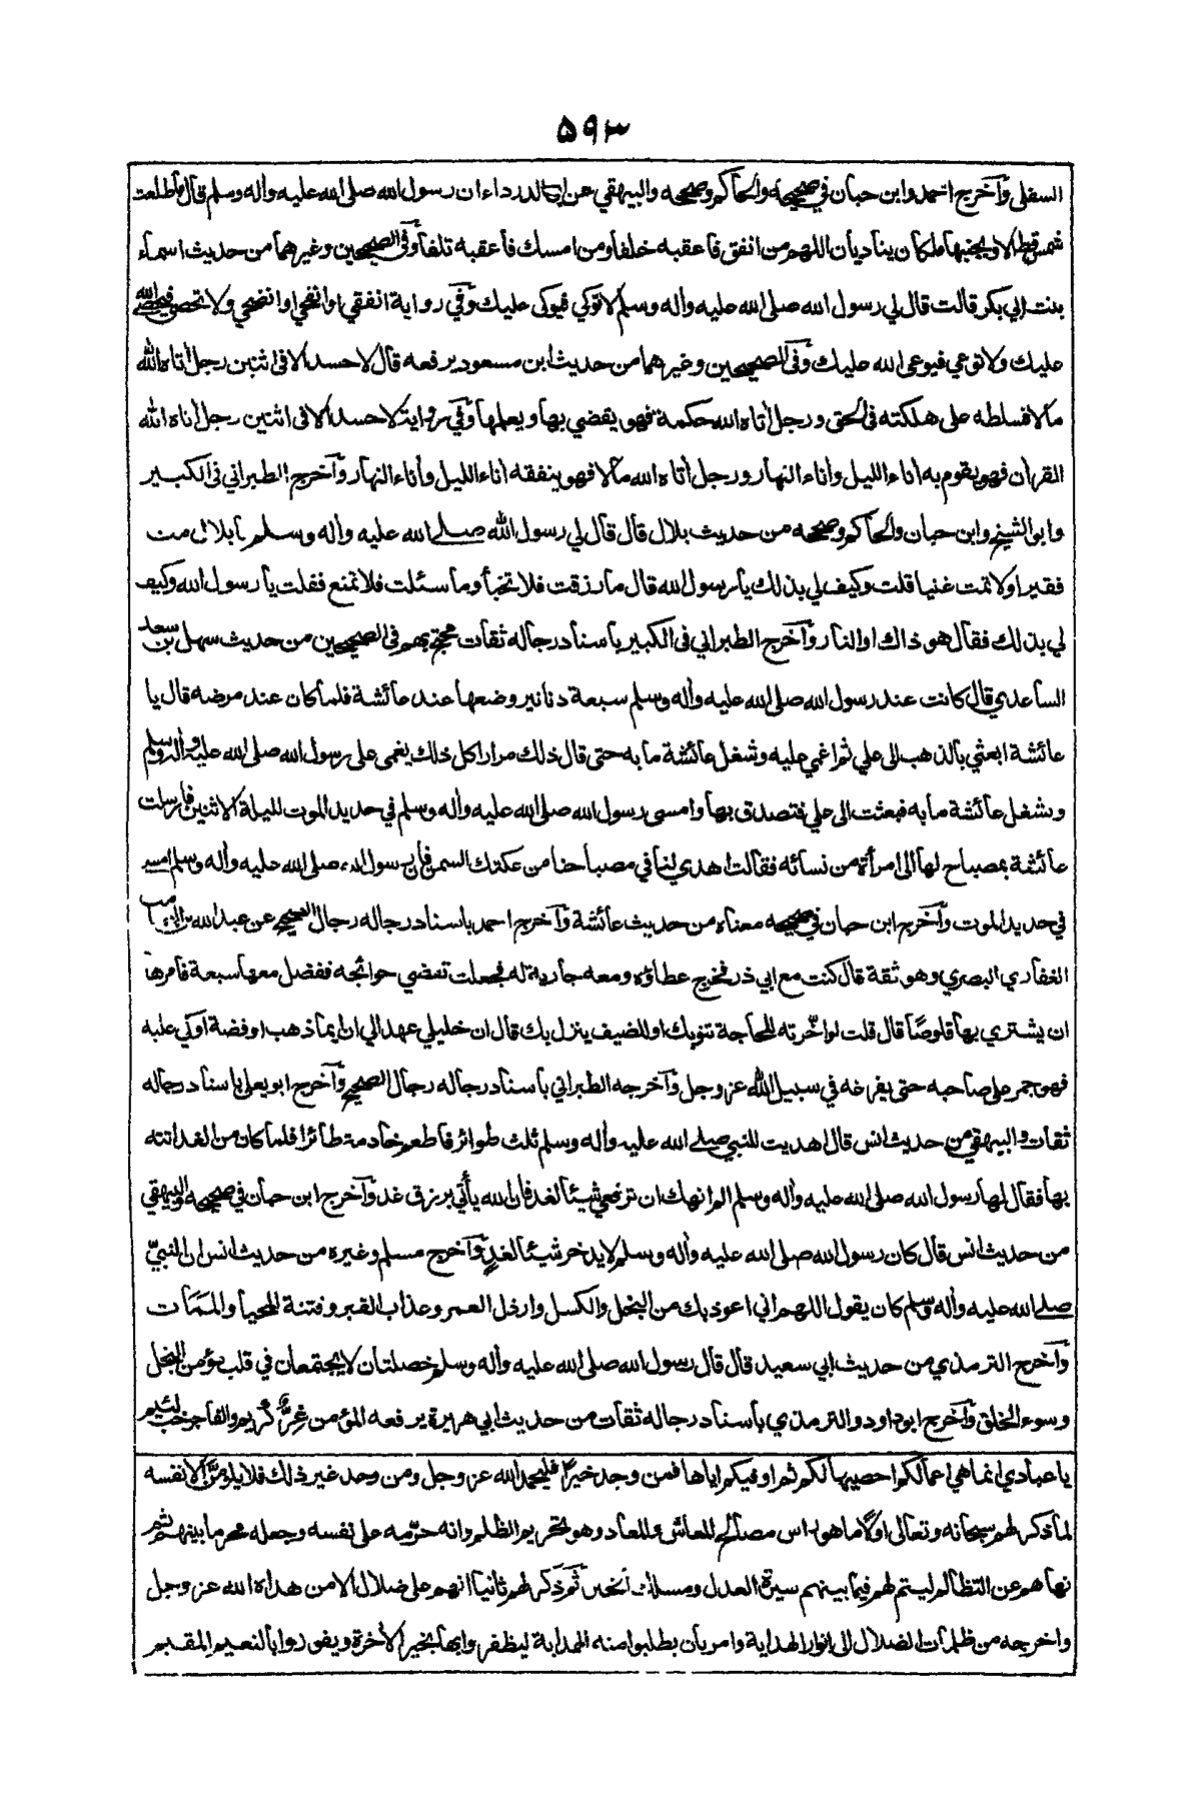 ۵۹۳
السفلى وأخرج احمد وابن حبان في صحيحه والحاكم وصححه والبيهقي عن ابي الدرداء ان رسول الله صلى الله عليه واله وسلم قال ما طلعت
شمس قط الا وبجنبها ملكان يناديان اللهم من انفق فاعقبه خلفا ومن امسك فاعقبه تلفا وفي الصحيحين وغيرهما من حديث اسماء
بنت ابي بكر قالت قال لي رسول الله صلى الله عليه واله وسلم لا توكي فيوكى عليك وفي رواية انفقي او انفحي او انضحي ولا تحصي فيحصي الله
عليك ولا توعي فيوعي الله عليك وفي الصحيحين وغيرهما من حديث ابن مسعود يرفعه قال لا حسد الا في اثنين رجل أتاه الله
مالا فسلطه على هلكته في الحق ورجل أتاه الله حكمة فهو يقضي بها ويعلمها وفي رواية لا حسد الا في اثنين رجل أتاه الله
القرأن فهو يقوم به أناء الليل وأناء النهار ورجل أتاه الله مالا فهو ينفقه أناء الليل وأناء النهار وأخرج الطبراني في الكبير
وابو الشيخ وابن حبان والحاكم وصححه من حديث بلال قال قال لي رسول الله صلى الله عليه واله وسلم يا بلال مت
فقيرا ولا تمت غنيا قلت وكيف لي بذلك يا رسول الله قال ما رزقت فلا تخبأ وما سئلت فلا تمنع فقلت يا رسول الله وكيف
لي بذلك فقال هو ذاك او النار وأخرج الطبراني في الكبير باسناد رجاله ثقات محتج بهم في الصحيحين من حديث سهل بن سعد
الساعدي قال كانت عند رسول الله صلى الله عليه واله وسلم سبعة دنانير وضعها عند عائشة فلما كان عند مرضه قال يا
عائشة ابعثي بالذهب الى علي ثم اغمي عليه وشغل عائشة ما به حتى قال ذلك مرارا كل ذلك يغمى على رسول الله صلى الله عليه واله وسلم
وشغل عائشة ما به فبعثت الى علي فتصدق بها وامسى رسول الله صلى الله عليه واله وسلم في حديد الموت لليلة الاثنين فارسلت
عائشة بمصباح لها الى امرأة من نسائه فقالت اهدي لنا في مصباحنا من عكتك السمن فان رسول الله صلى الله عليه واله وسلم امسى
في حديد الموت وأخرج ابن حبان في صحيحه معناه من حديث عائشة وأخرج احمد باسناد رجاله رجال الصحيح عن عبد الله بن الصامت
الغفاري البصري وهو ثقة قال كنت مع ابي ذر فخرج عطاؤه ومعه جارية له فجعلت تقضي حوائجه ففضل معها سبعة فامرها
ان يشتري بها فلوصًا قال قلت لو اخّرته للحاجة تنوبك او للضيف ينزل بك قال ان خليلي عهد الي ان ايما ذهب او فضة اوكي عليه
فهو جمر على صاحبه حتى يفرغه في سبيل الله عز وجل وأخرجه الطبراني باسناد رجاله رجال الصحيح وأخرج ابو يعلى باسناد رجاله
ثقات والبيهقي من حديث انس قال اهديت للنبي صلى الله عليه واله وسلم ثلث طوائر فاطعم خادمة طائرا فلما كان من الغد اتته
بها فقال لها رسول الله صلى الله عليه واله وسلم الم انهك ان ترفعي شيئا لغد فان الله يأتي برزق غد وأخرج ابن حبان في صحيحه والبيهقي
من حديث انس قال كان رسول الله صلى الله عليه واله وسلم لا يدخر شيئا لغدٍ وأخرج مسلم وغيره من حديث انس ان النبيّ
صلى الله عليه واله وسلم كان يقول اللهم اني اعوذ بك من البخل والكسل وارذل العمر وعذاب القبر وفتنة المحيا والممات
وأخرج الترمذي من حديث ابي سعيد قال قال رسول الله صلى الله عليه واله وسلم خصلتان لا يجتمعان في قلب مؤمن البخل
وسوء الخلق وأخرج ابو داود والترمذي باسناد رجاله ثقات من حديث ابي هريرة يرفعه المؤمن غِرٌّ كريم والفاجر خب لئيم
يا عبادي انما هي اعمالكم احصيها لكم ثم اوفيكم اياها فمن وجد خيرا فليحمد الله عز وجل ومن وجد غير ذلك فلا يلومنّ الا نفسه
لما ذكر لهم سبحانه وتعالى اولًا ما هو اس مصالح المعاش والمعاد وهو تحريم الظلم وانه حرّمه على نفسه وجعله محرما بينهم ثم
نهاهم عن التظالم ليستتم لهم فيما بينهم سيرة العدل ومسلك الخير ثم ذكر لهم ثانيا انهم على ضلال الا من هداه الله عز وجل
واخرجه من ظلمات الضلال الى انوار الهداية وامر بان يطلبوا منه الهداية ليظفروا بها بخير الأخرة ويفوزوا بالنعيم المقيم